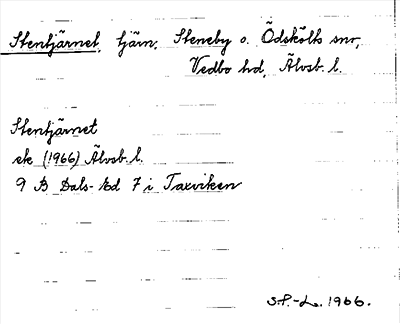 Stentjärnet, tjärn, Steneby o. Ödskölts snr,
Vedbo hd, Älvsb. l.
Stentjärnet
ek (1966) Älvsb. l.
9 B Dals-Ed 7 i Taxviken
S.P.-L. 1966.